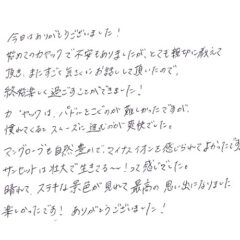 今日はありがとうございました！
初めてのカヤックで不安もありましたが、とても親切に教えて
頂き、またすごく気さくにお話しして頂いたので、
終始楽しく過ごすことができました！
カヤックは、パドルをこぐのが難しかったですが、
慣れてくるとスムーズに進むのが爽快でした。
マングローブも自然豊かで、マイナスイオンを感じられてよかったです
サンセットは壮大で生きてる〜！って感じでした。
晴れて、ステキな景色が見れて最高の思い出になりました
楽しかったです！ありがとうございました！